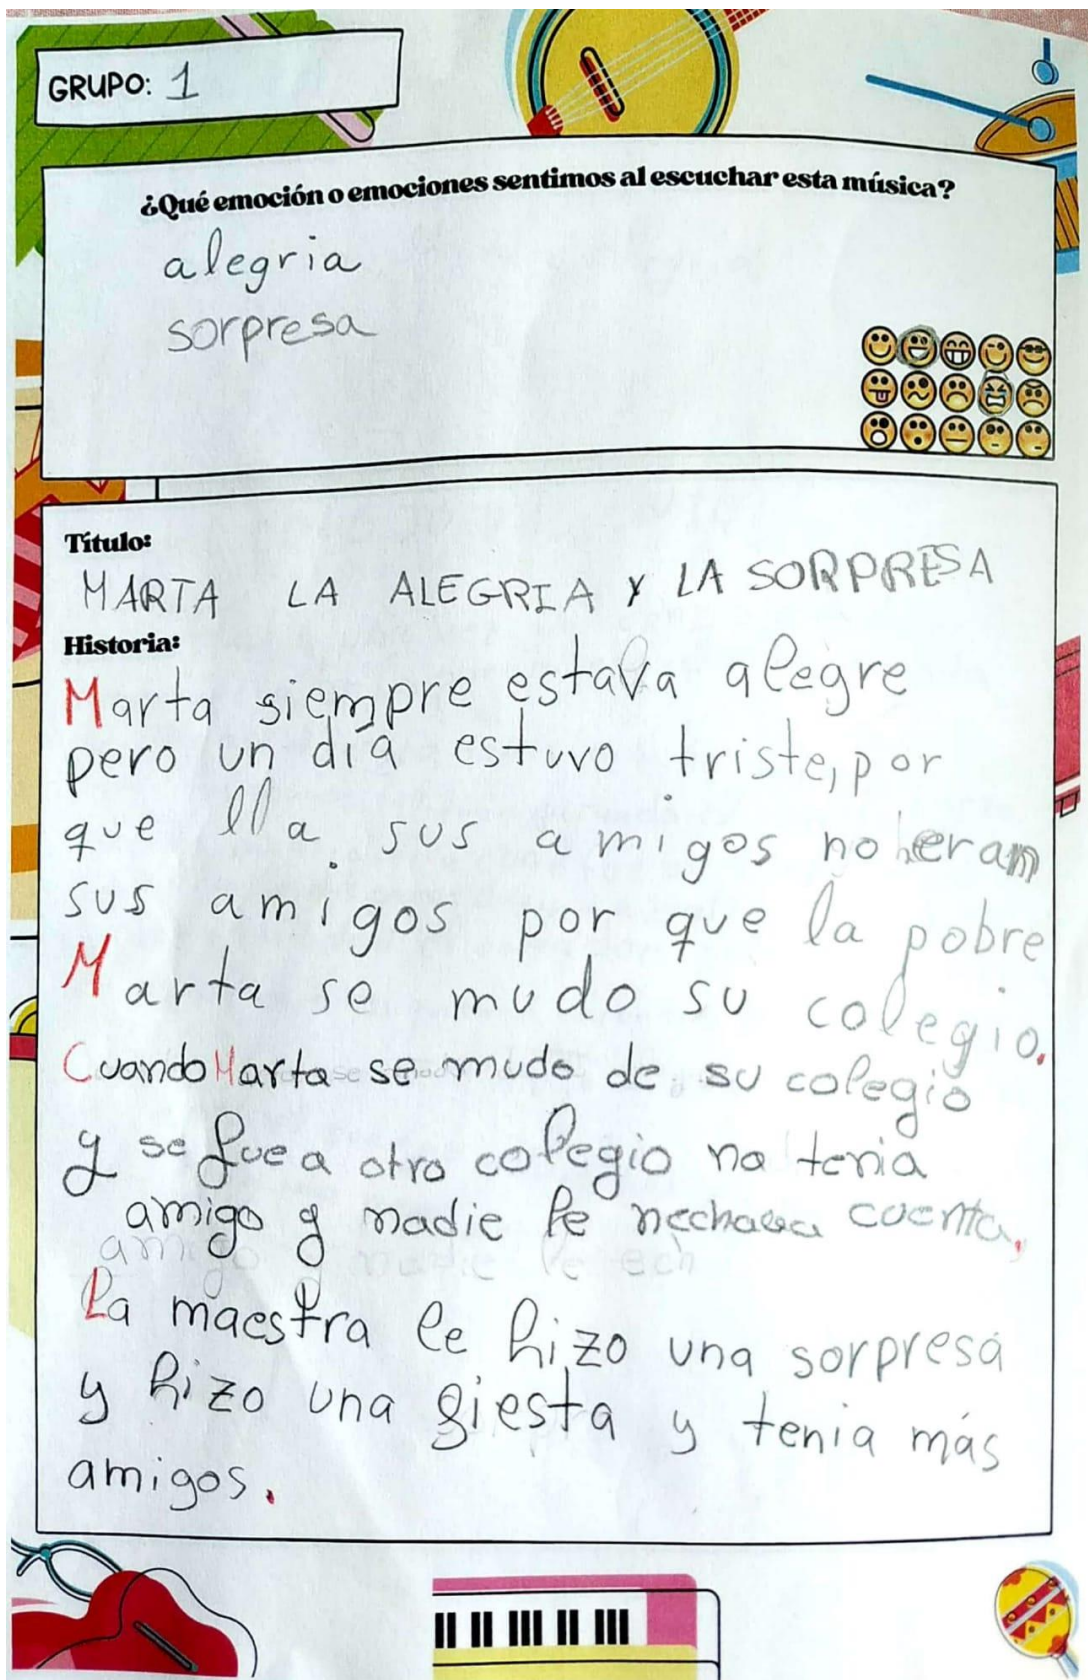 GRUPO: 1
¿Qué emoción o emociones sentimos al escuchar esta música?
alegria
sorpresa
Título:
MARTA LA ALEGRIA Y LA SORPRESA
Historia:
Marta siempre estava alegre
pero un día estuvo triste, por
que lla sus amigos no heran
sus amigos por que la pobre
Marta se mudo su colegio.
Cuando Marta se mudo de su colegio
y se fue a otro colegio no tenia
amigo y nadie le nechava cuenta.
amigo nadie le ech
La maestra le hizo una sorpresa
y hizo una fiesta y tenia más
amigos.